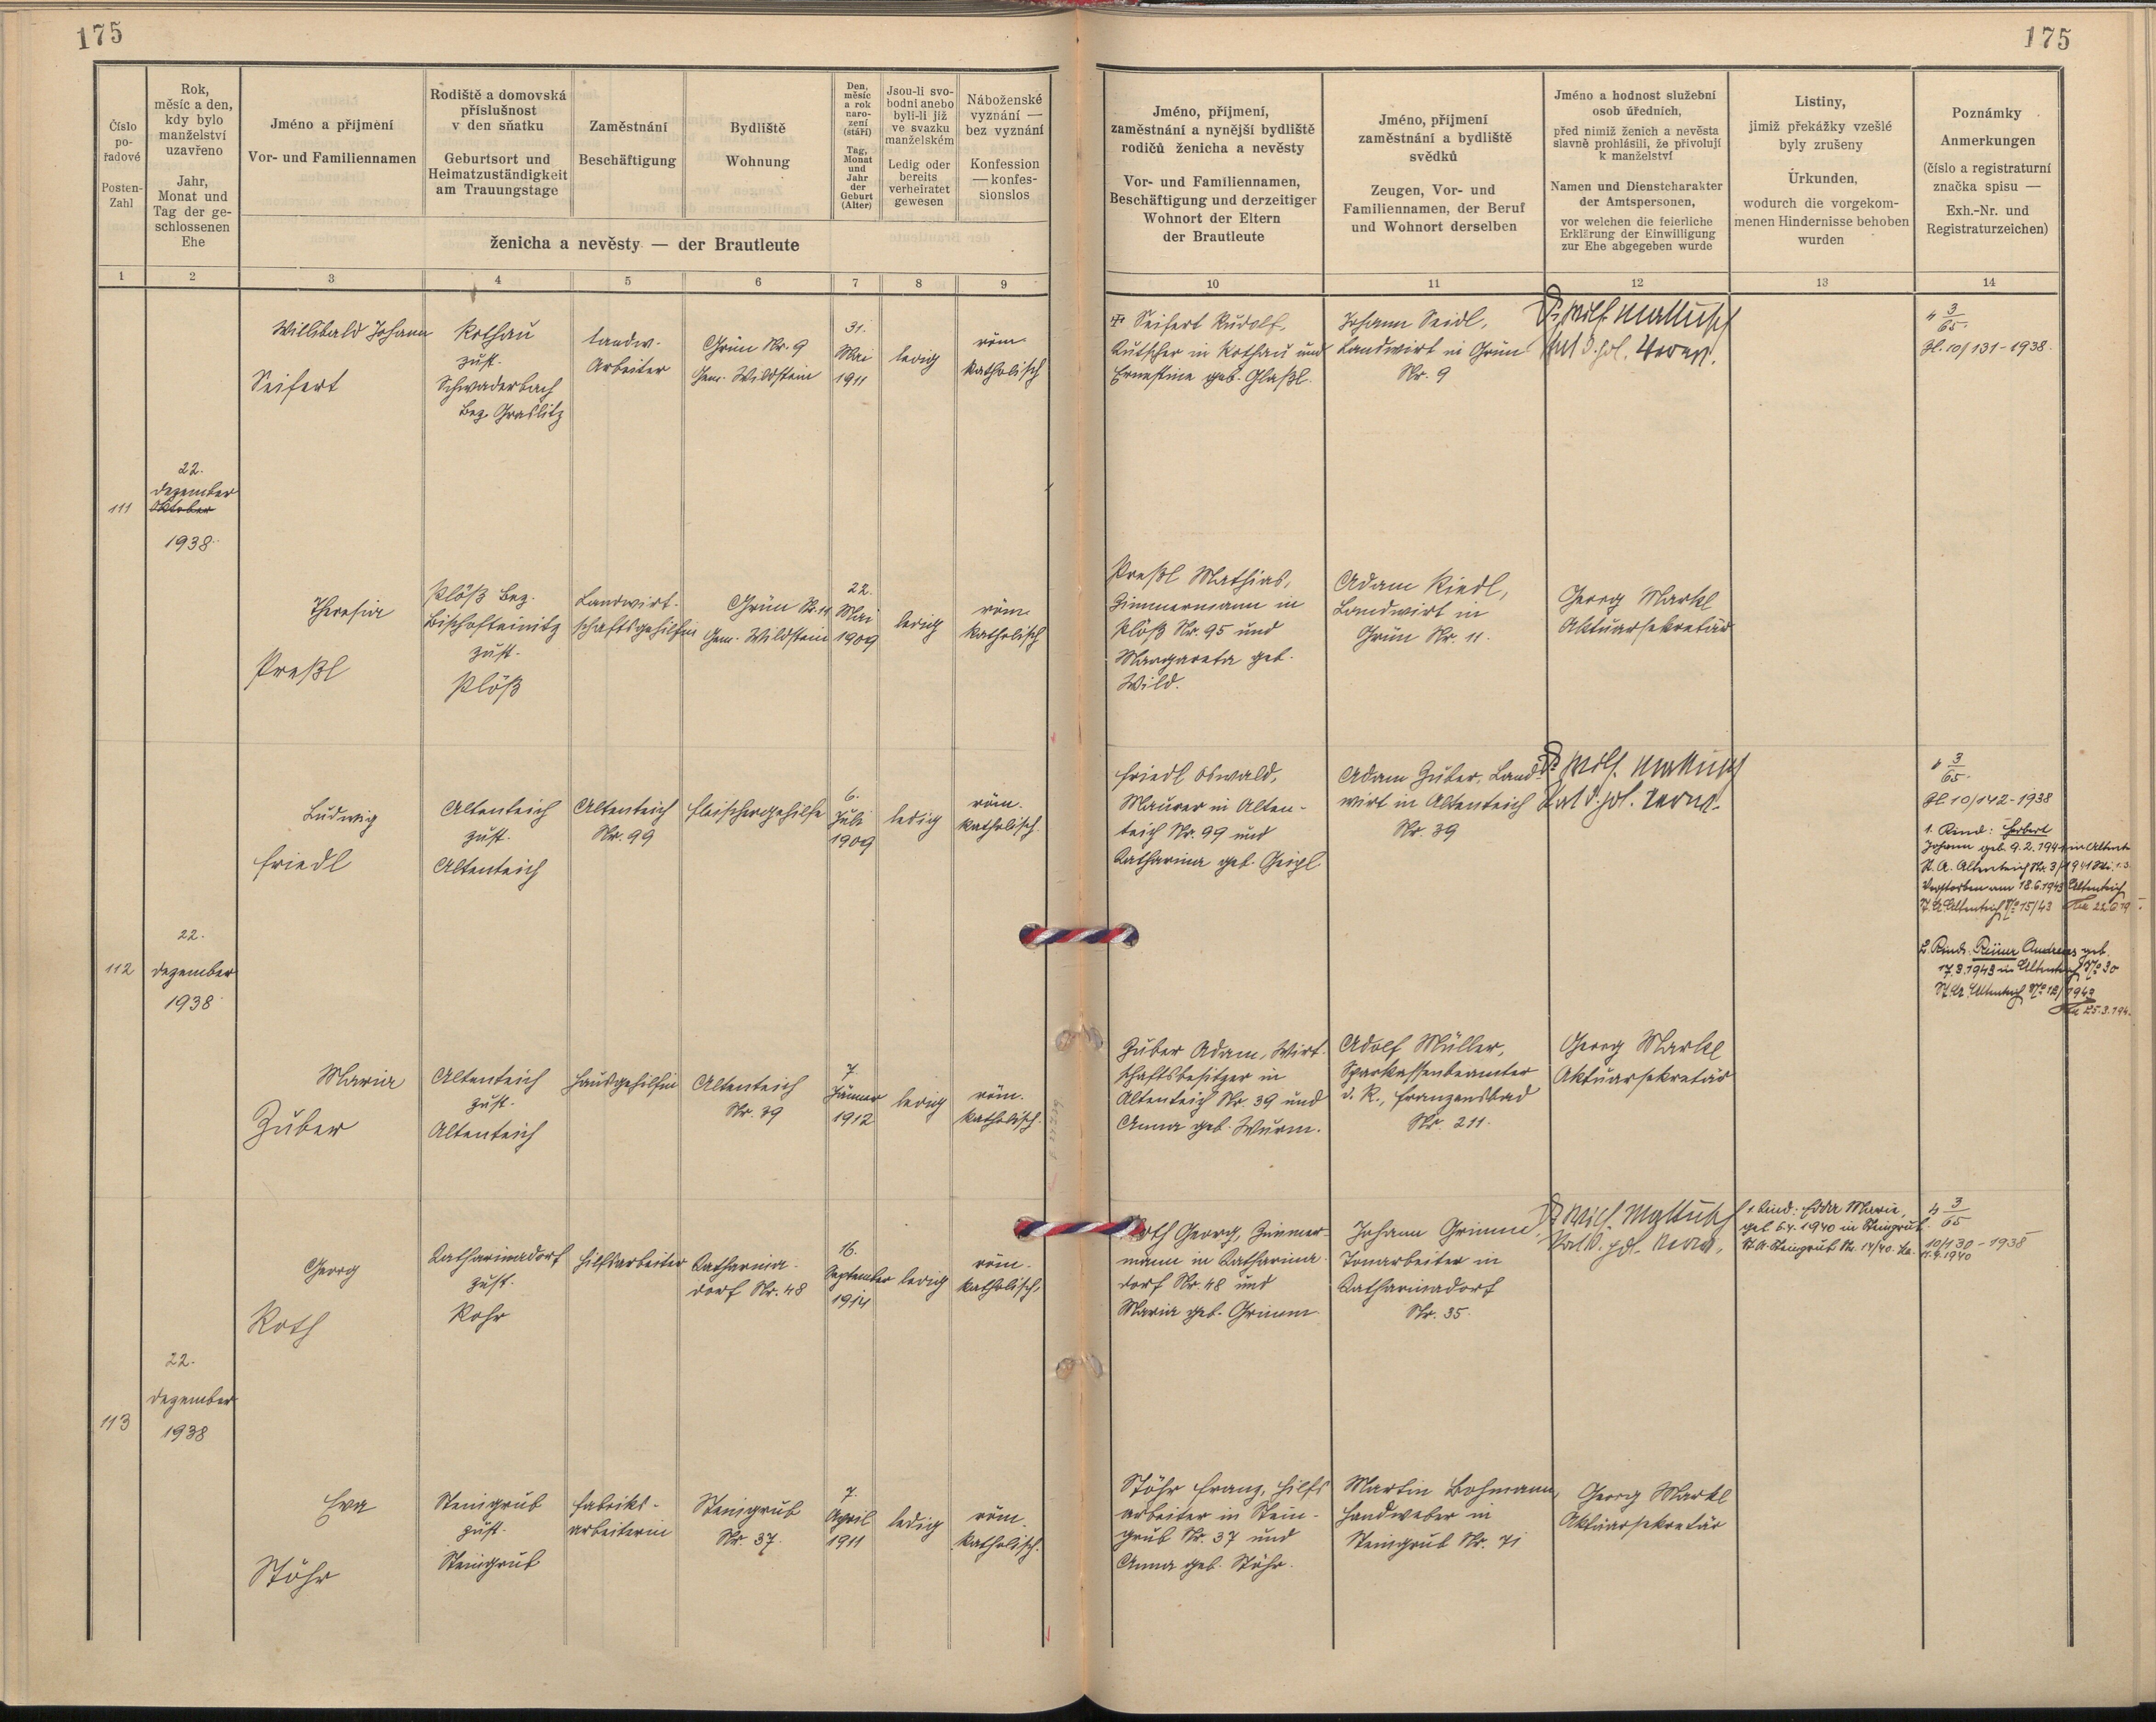 175
175
Číslo
po-
řadové
Posten-
Zahl
Rok,
měsíc a den,
kdy bylo
manželství
uzavřeno
Jahr,
Monat und
Tag der ge-
schlossenen
Ehe
Jméno a příjmení
Vor- und Familiennamen
Rodiště a domovská
příslušnost
v den sňatku
Geburtsort und
Heimatzuständigkeit
am Trauungstage
Zaměstnání
Beschäftigung
Bydliště
Wohnung
Den,
měsíc
a rok
naro-
zení
(stáří)
Tag,
Monat
und
Jahr
der
Geburt
(Alter)
Jsou-li svo-
bodni anebo
byli-li již
ve svazku
manželském
Ledig oder
bereits
verheiratet
gewesen
Náboženské
vyznání —
bez vyznání
Konfession
— konfes-
sionslos
ženicha a nevěsty — der Brautleute
Jméno, příjmení,
zaměstnání a nynější bydliště
rodičů ženicha a nevěsty
Vor- und Familiennamen,
Beschäftigung und derzeitiger
Wohnort der Eltern
der Brautleute
Jméno, příjmení
zaměstnání a bydliště
svědků
Zeugen, Vor- und
Familiennamen, der Beruf
und Wohnort derselben
Jméno a hodnost služební
osob úředních,
před nimiž ženich a nevěsta
slavně prohlásili, že přivolují
k manželství
Namen und Dienstcharakter
der Amtspersonen,
vor welchen die feierliche
Erklärung der Einwilligung
zur Ehe abgegeben wurde
Listiny,
jimiž překážky vzešlé
byly zrušeny
Urkunden,
wodurch die vorgekom-
menen Hindernisse behoben
wurden
Poznámky
Anmerkungen
(číslo a registraturní
značka spisu —
Exh.-Nr. und
Registraturzeichen)
1 2 3 4 5 6 7 8 9 10 11 12 13 14
111
22.
Dezember
Oktober
1938
Willibald Johann
Seifert
Rothau
zust.
Schwaderbach
Bez. Graslitz
landw.
Arbeiter
Grün Nr. 9
Gem. Wildstein
31.
Mai
1911
ledig
röm.
katholisch
Seifert Rudolf,
Kutscher in Rothau und
Ernestine geb. Glaßl.
Johann Seidl,
Landwirt in Grün
Nr. 9
4 3/65.
Zl. 10/131-1938.
Theresia
Preßl
Plöß Bez.
Bischofteinitz
zust.
Plöß
Landwirt-
schaftsgehilfin
Grün Nr. 11
Gem. Wildstein
22.
Mai
1909
ledig
röm.
katholisch
Preßl Mathias,
Zimmermann in
Plöß Nr. 95 und
Margareta geb.
Wild.
Adam Riedl,
Landwirt in
Grün Nr. 11.
Georg Markl
Aktuarsekretär
112
22.
Dezember
1938
Ludwig
Friedl
Altenteich
zust.
Altenteich
Altenteich
Nr. 99
Fleischergehilfe
6.
Juli
1909
ledig
röm.
katholisch.
Friedl Oswald,
Maurer in Alten-
teich Nr. 99 und
Katharina geb. Geigl
Adam Zuber, Land-
wirt in Altenteich
Nr. 39
3/65.
Zl 10/142-1938
1. Kind: Herbert
Johann geb. 9.2.1941 in Altent.
St. A. Altenteich Nr. 3/1941
Verstorben am 18.6.1943 Altenteich
St. A. Altenteich No 15/43
2. Kind: Andreas geb.
17.3.1943 in Altenteich No 30
St. A. Altenteich No 12/1943
Maria
Zuber
Altenteich
zust.
Altenteich
Hausgehilfin
Altenteich
Nr. 39
7.
Jänner
1912
ledig
röm.
katholisch.
Zuber Adam, Wirt-
schaftsbesitzer in
Altenteich Nr. 39 und
Anna geb. Wurm.
Adolf Müller,
Sparkassenbeamter
d. R., Franzensbad
Nr. 211.
Georg Markl
Aktuarsekretär
113
22.
Dezember
1938
Georg
Roth
Katharinadorf
zust.
Rohr
Hilfsarbeiter
Katharina-
dorf Nr. 48
16.
September
1914
ledig
röm.
katholisch.
Roth Georg, Zimmer-
mann in Katharina-
dorf Nr. 48 und
Maria geb. Grimm
Johann Grimm,
Tonarbeiter in
Katharinadorf
Nr. 35.
1. Kind: Edda Marie,
geb. 6.4.1940 in Steingrub.
St. A. Steingrub Nr. 14/40.
4 3/65
10/130-1938
11.4.1940
Eva
Stöhr
Steingrub
zust.
Steingrub
Fabriks-
arbeiterin
Steingrub
Nr. 37.
7.
April
1911
ledig
röm.
katholisch.
Stöhr Franz, Hilfs-
arbeiter in Stein-
grub Nr. 37 und
Anna geb. Stöhr.
Martin Bohmann,
Handweber in
Steingrub Nr. 71
Georg Markl
Aktuarsekretär